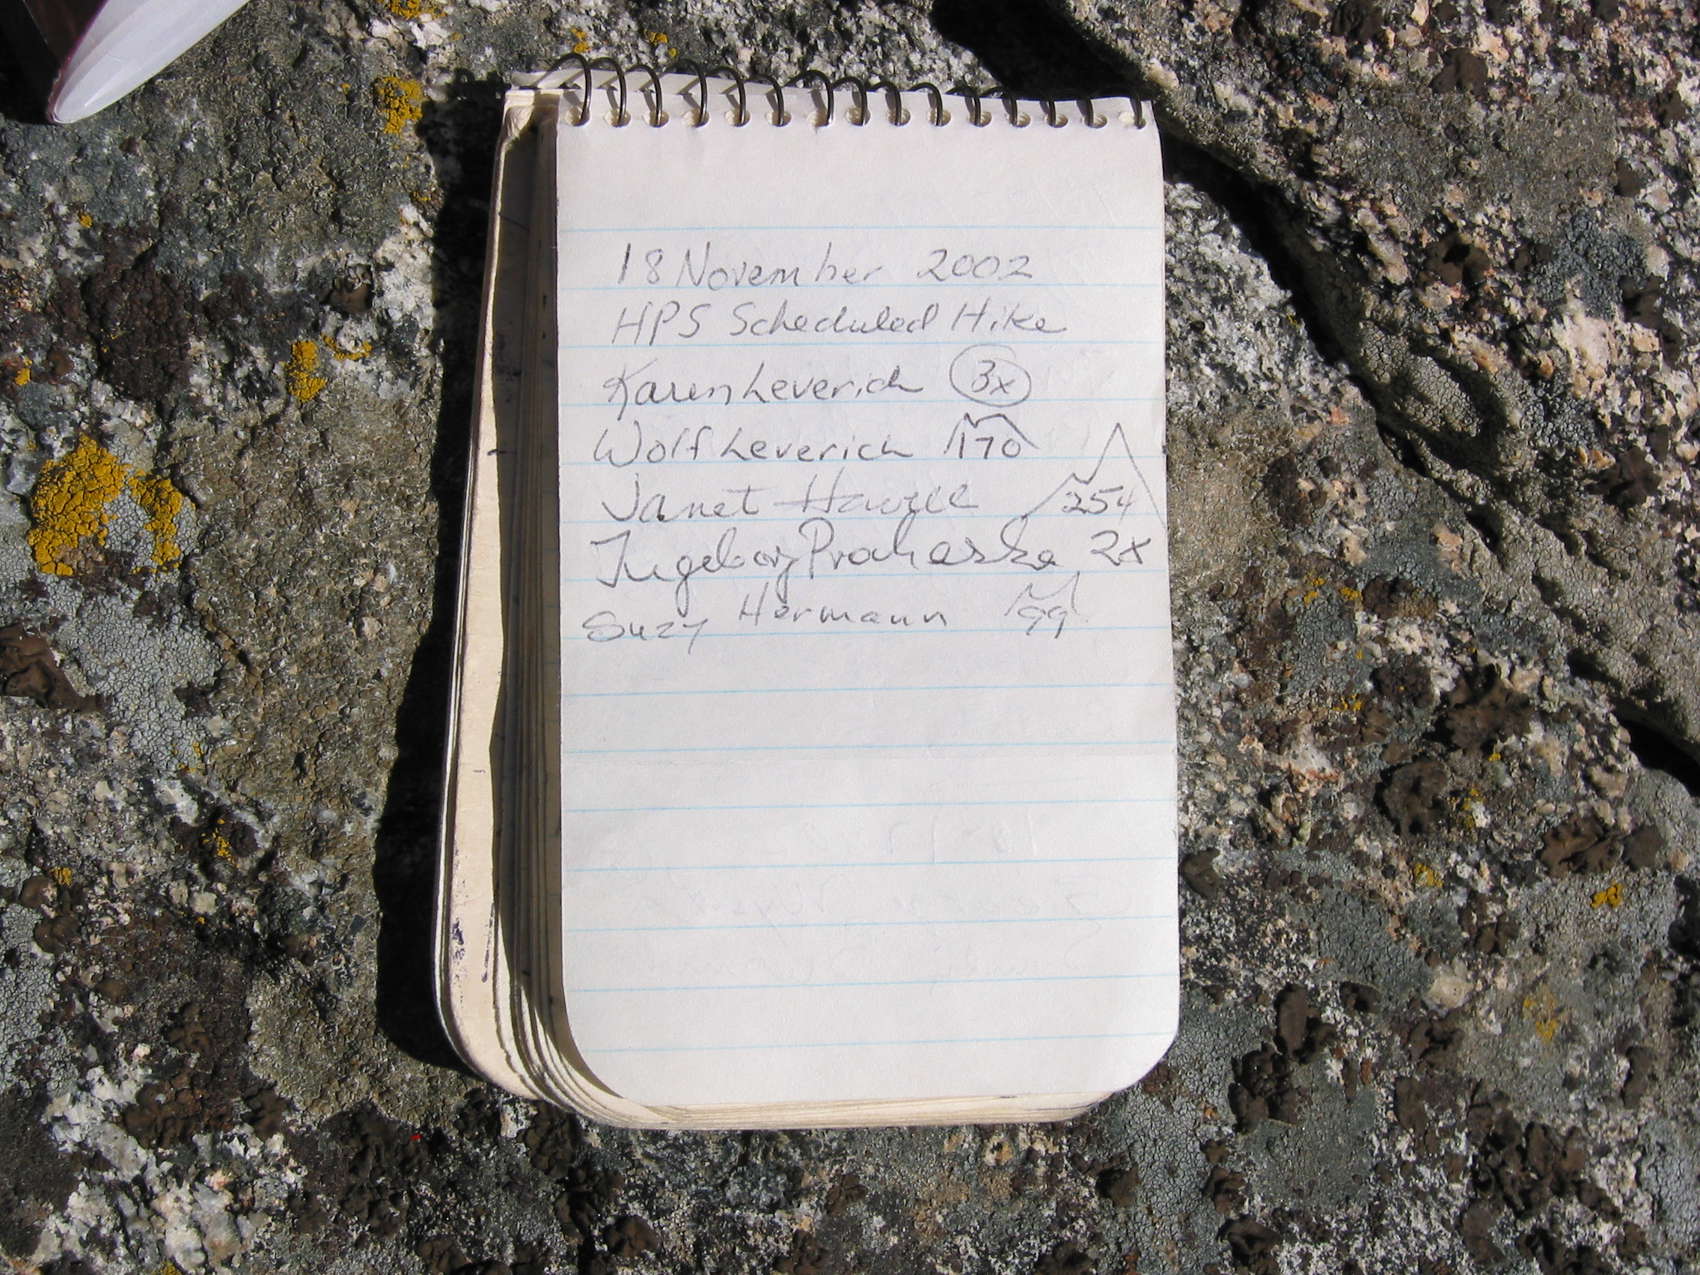 18 November 2002
HPS Scheduled Hike
Karen Leverich 3x
Wolf Leverich 170
Janet Howell 254
Ingeborg Prochaska 2x
Suzy Hermann 99